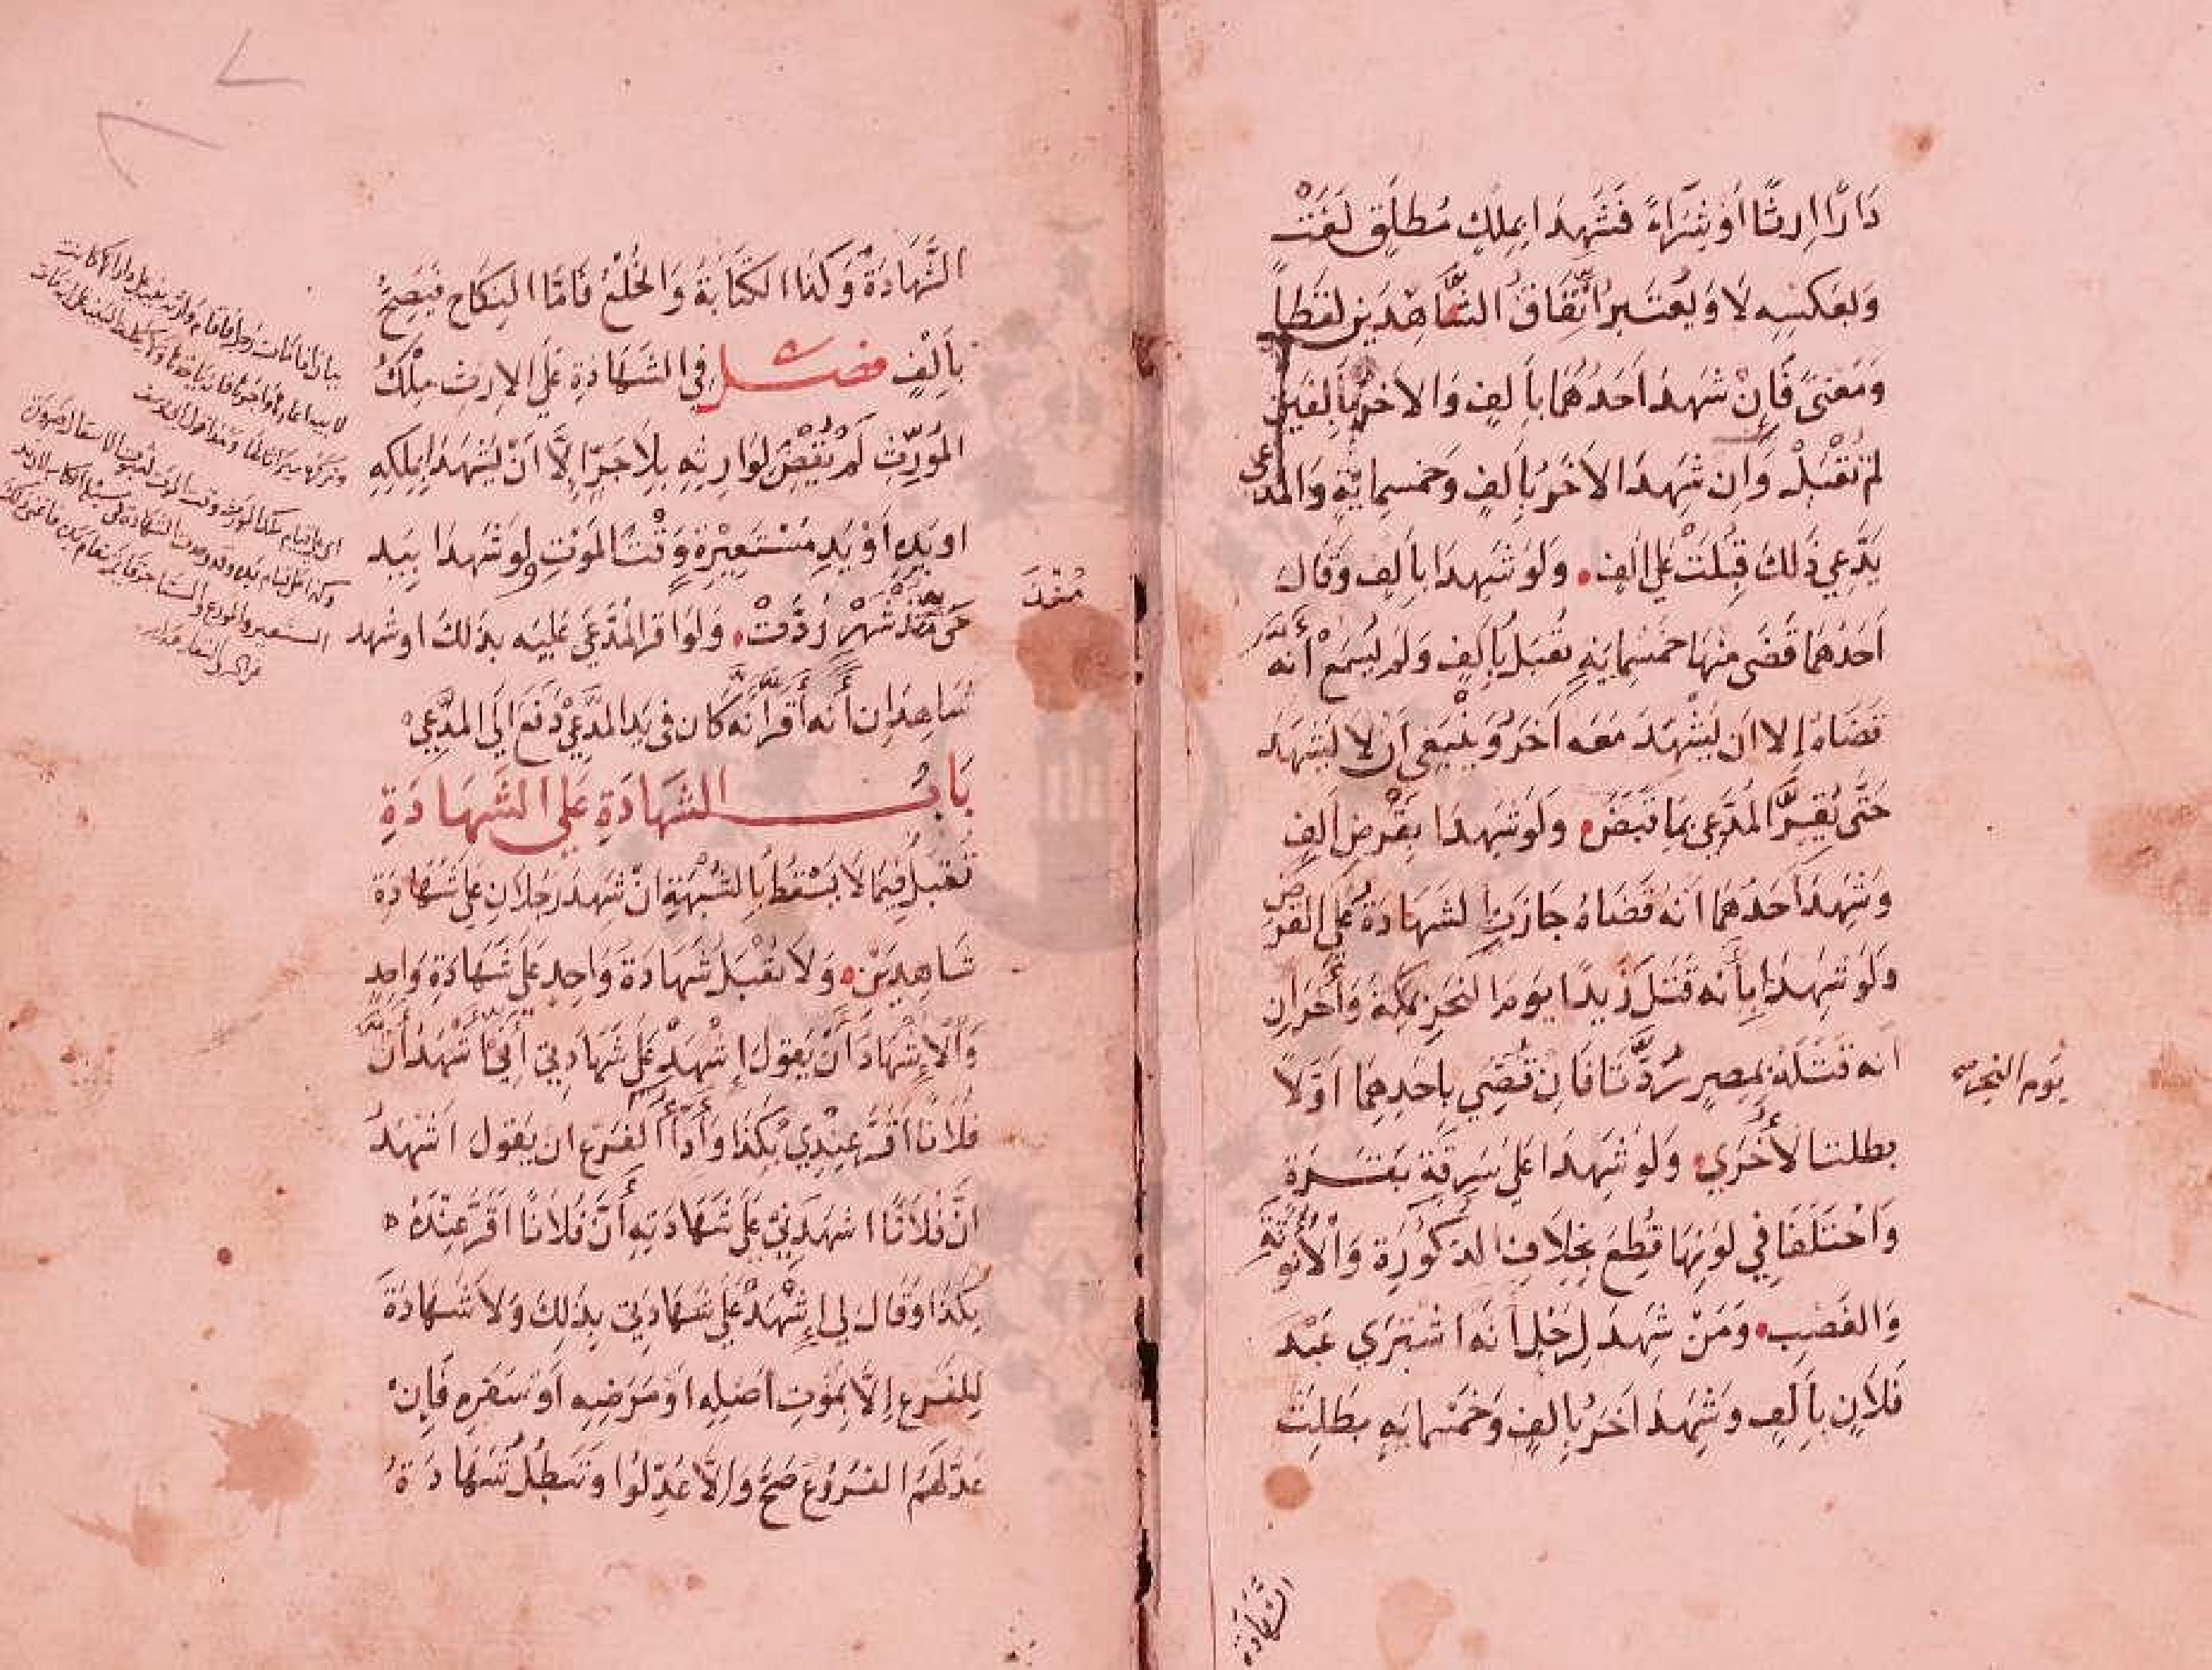 دَارًا اِرثًا اَوْ شِرَاءً فَشَهِدَا بِمِلكٍ مُطلَقٍ لَغَتْ
وَبعَكسِه لَا وَيُعتَبرُ اتِّفَاقُ الشَّاهِدَين لَفظاً
وَمَعنىً فَإِنْ شَهِدَ اَحَدُهُمَا بِاَلفٍ وَالاخرُ بِاَلفَينِ
لَم تُقْبَلْ وَاِن شَهِدَ الاخَرُ بِاَلفٍ وَخمسِمايَةٍ وَالمدعى
يَدَّعِي ذَلكَ قُبِلَتْ عَلى اَلفٍ وَلَو شَهِدَا بِاَلفٍ وَقَالَ
اَحَدُهُمَا قَضَى مِنهَا خَمسَمايَةٍ تُقبَل بِاَلفٍ وَلم يُسمَعْ أنه
قَضَاهُ إلا ان يَشْهَدَ مَعَه اخَرُ وَيَنْبَغِي اَن لا يَشهَدَ
حَتَّى يُقِرَّ المُدَّعِي بمَا قَبَضَ وَلَو شَهِدَا بِقَرْضِ اَلفٍ
وَشَهِدَ اَحَدُهُمَا اَنهُ قَضَاهُ جَازَتِ الشهَادَةُ عَلَى القَرض
وَلَو شَهِدَا بِأَنه قَتَلَ زَيدًا يَومَ النحَرِ بمَكةَ وَأخَرَانِ
اَنه قَتَلَهُ بِمِصرٍ رُدَّتَا فَاِن قُضِيَ بِاحدِهِمَا اَوَّلاً
بطلت الأُخرَي وَلَو شَهِدَا عَلى سَرِقَةِ بَقَرَةٍ
وَاخْتَلَفَا فِي لَونِهَا قُطِعَ بخِلَافِ الذكُورَةِ وَالْأُنُوثَةِ
وَالغَصبِ وَمَنْ شَهِدَ لِرَجُلٍ اَنهُ اشْتَرَي عَبْدَ
فلَانٍ بِاَلفٍ وَشَهِدَ اخَرُ بِاَلفٍ وَخمسَمايَةٍ بطَلَت
يَوم النحر
الشهَادَة
الشَّهَادَةُ وَكَذَا الكتَابَةُ وَالخُلْعُ فَاَمَّا النكَاح فَيَصِحُّ
بِاَلفٍ فصل في الشهَادَةِ عَلَى الارثِ مِلْكُ
المُورِّثِ لَمْ يُقْضَ لوَارِثِه بِلَا جَرٍّ اِلَّا اَنْ يَشهَدَا بِمِلكِهِ
او يَدِهِ اَوْ يَدِ مُسْتَعِيْرِهِ وَقْتَ المَوْتِ وَلو شَهِدَا بِيَد
حَيٍّ مُنْذُ شَهْرٍ رُدَّتْ وَلَو اَقر المُدَّعَى عَلَيه بذلكَ او شهد
شَاهِدَانِ أَنه أَقَرَّ اَنَّه كَانَ فِى يَدِ المدَّعِيْ دُفَعَ اِلَى المدَّعِيْ
مُنْذُ
بَابُ الشهَادَةِ عَلى الشَّهَادَةِ
تُقْبَلُ فِيمَا لَا يَسْقُطُ بِالشُبْهَةِ انْ شَهِدَ رَجُلَانِ عَلى شَهَادَةِ
شَاهِدَيْنِ وَلَا تُقْبَلُ شَهَادَةُ وَاحِدٍ عَلَى شَهَادَةِ وَاحِدٍ
وَالإِشْهَادُ اَنْ يَقولَ إِشْهَدْ عَلى شَهَادَتِي أَنِّي أَشْهَدُ أَنَّ
فلَانًا اَقَرَّ عِنْدِيْ بكَذَا وَأَدَآءُ الفَرعِ ان يَقولَ اَشهَدُ
انَّ فلَانًا اشهَدَنِيْ عَلَى شَهَادَتِهِ أَنَّ فلَانًا اَقَرَّ عِنْدَهُ
بكَذَا وَقَالَ لِي إِشْهَدْ عَلَى شَهَادَتِي بِذلِكَ وَلَا شَهَادَةَ
لِلفَرعِ إِلَّا بمَوْتِ اَصْلِهِ اَوْ مَرَضِهِ اَوْ سَفَرِهِ فَاِنْ
عَدَّلَهُمُ الفُرُوعُ صَحَّ وَاِلَّا عُدِّلُوا وَتَبطُلُ شَهَادَةُ